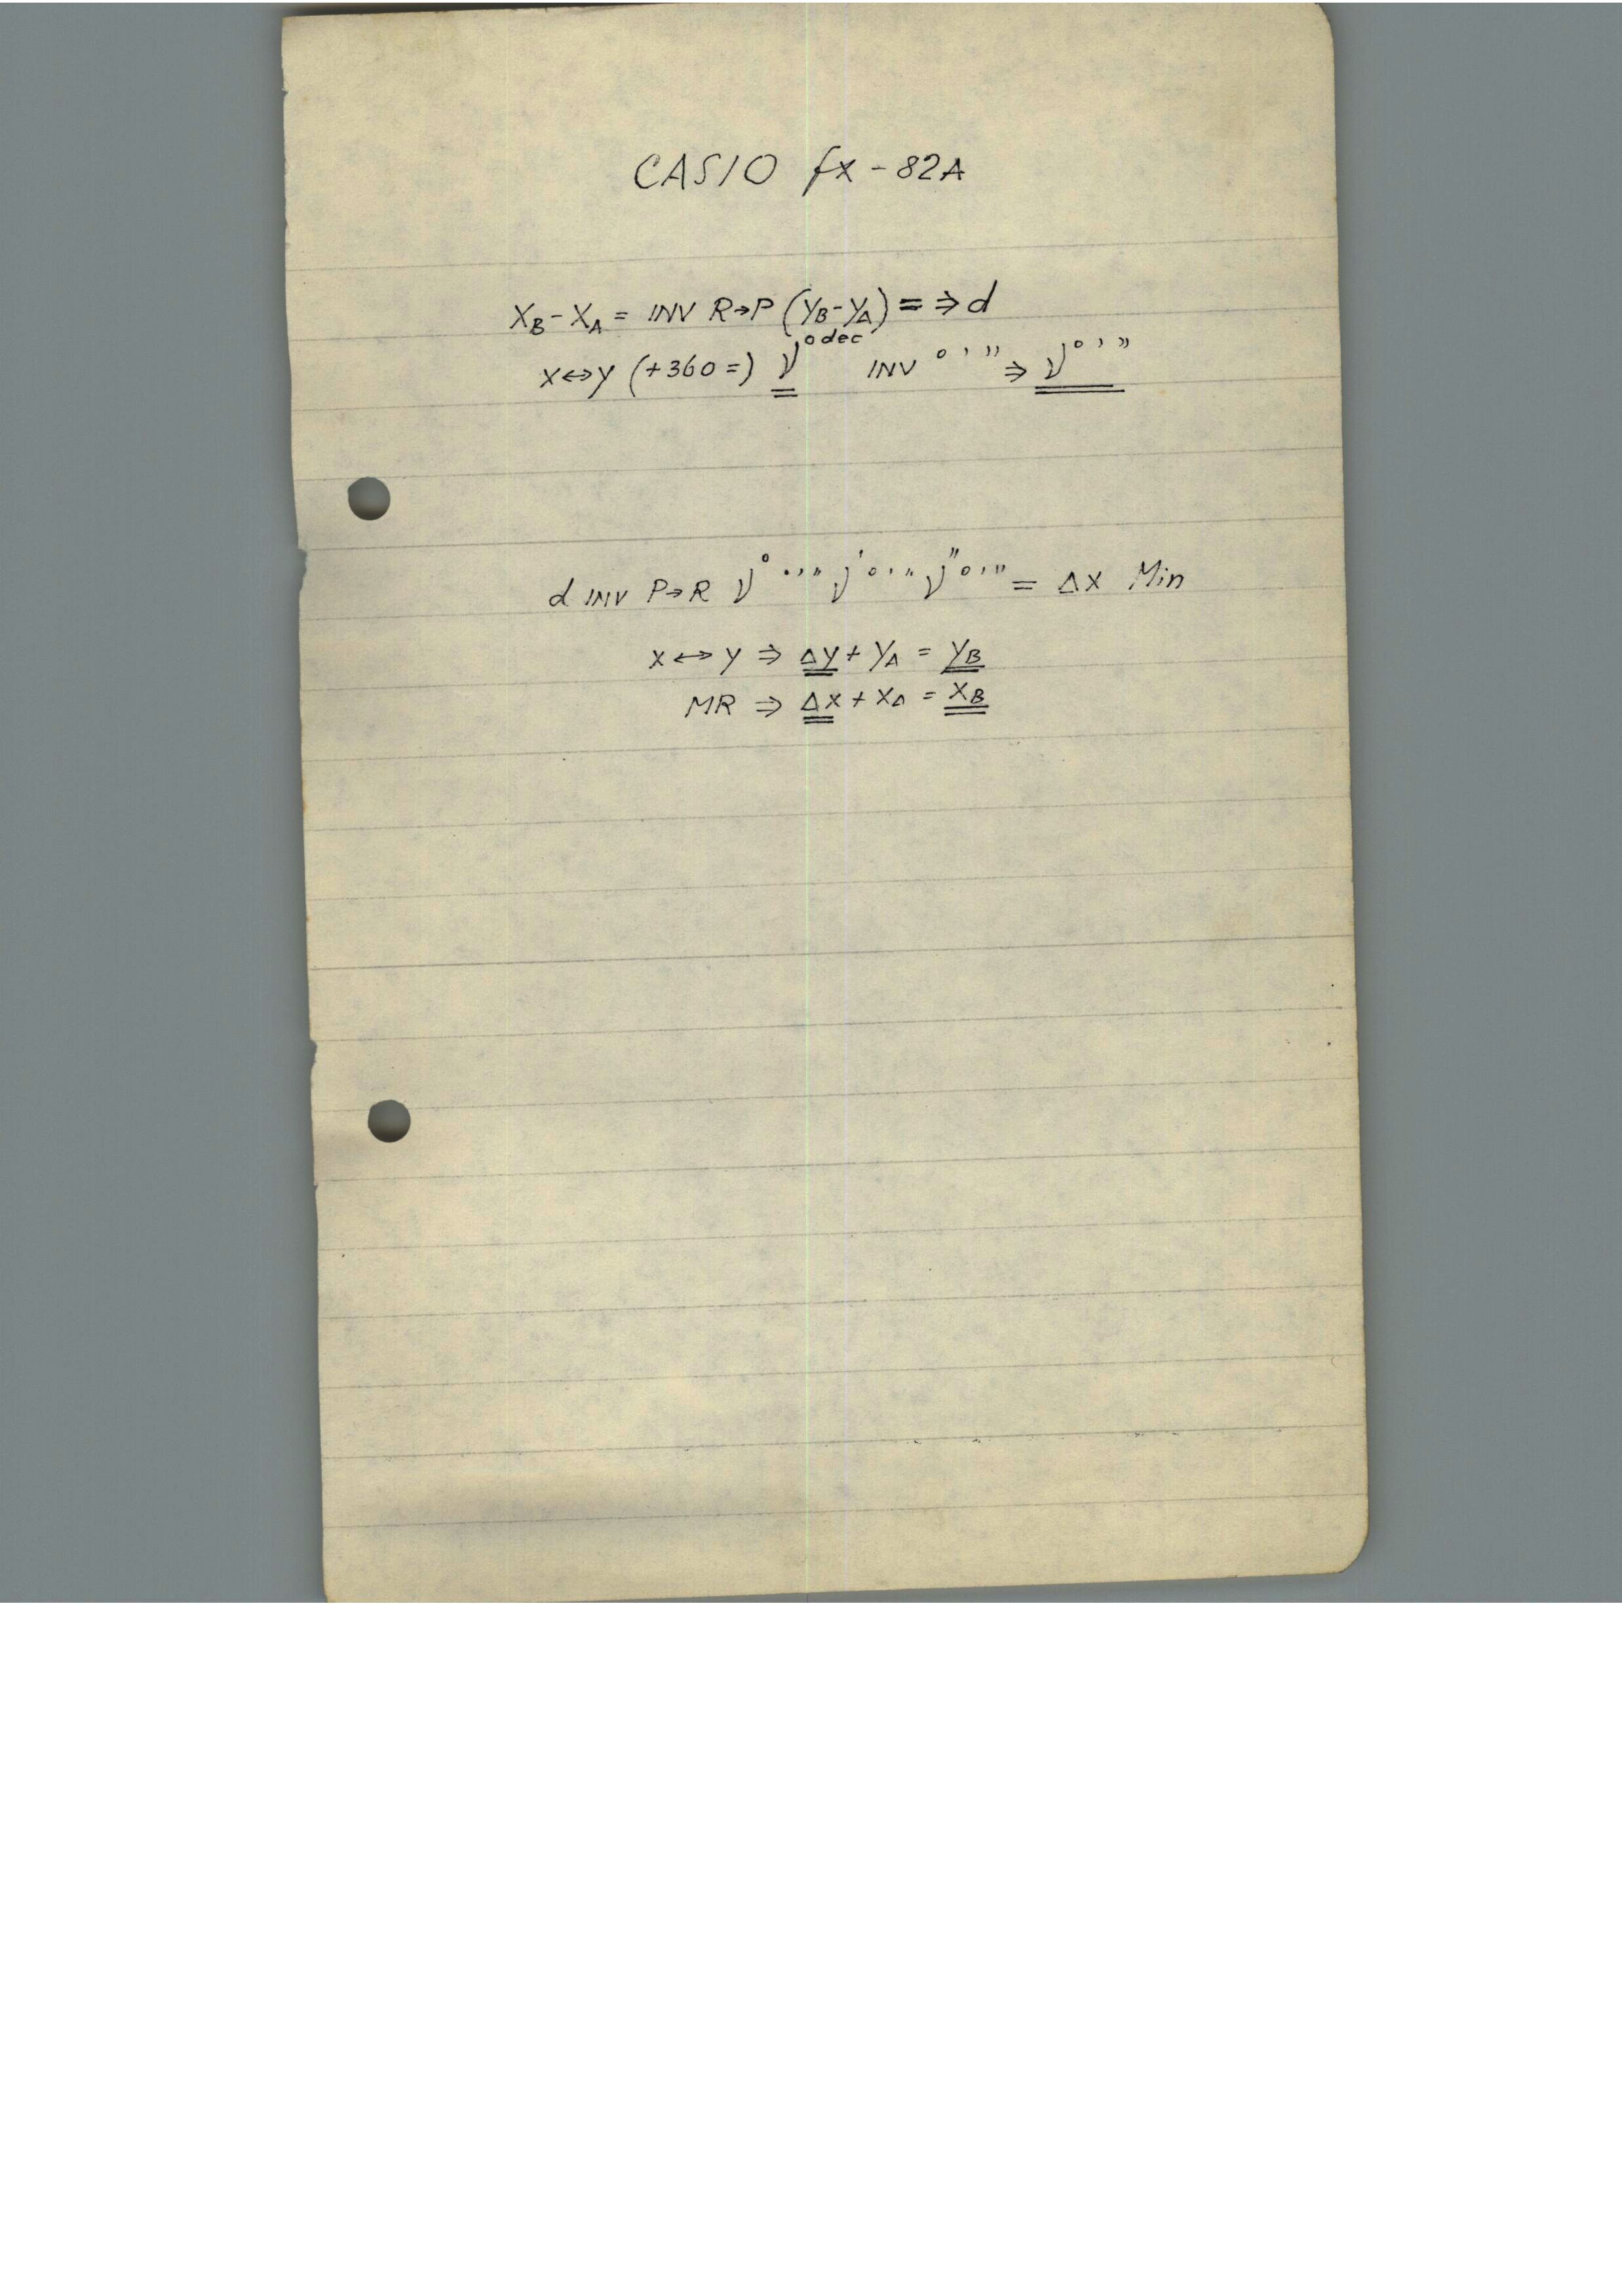 CASIO fx-82A
X_B - X_A = INV R→P (Y_B - Y_A) = ⇒ d
X↔Y (+360=) ν° dec INV ° ' " ⇒ ν° ' "
d INV P→R ν° ° ' " ν' ° ' " ν" ° ' " = Δx Min
X↔Y ⇒ Δy + Y_A = Y_B
MR ⇒ Δx + X_A = X_B